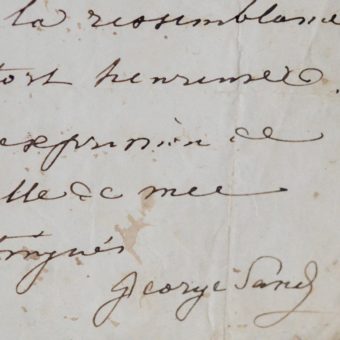 la ressemblance
fort heureuse.
expression de
elle de mes
George Sand